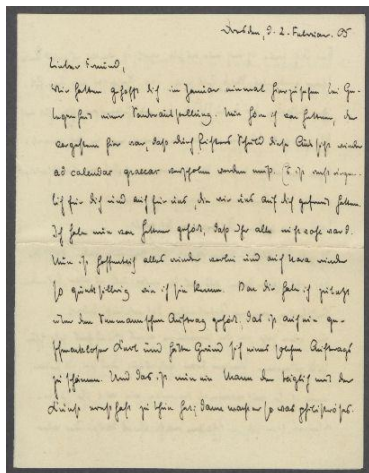 Dresden, d. 2. Februar. 05
Lieber Freund,
Wir hatten gehofft dich im Januar einmal hier zu sehen bei Ge-
legenheit einer Neubausitzung. Nun höre ich von Hettner, der
gestern hier war, daß durch Schuld diese Aussicht wieder
ad calendas graecas verschoben werden muß. Es ist recht
lich für dich und auch für uns, die wir uns auf dich gefreut hatten.
Ich habe nun von Hettner gehört, daß Ihr alle nicht wohl wart.
Nun ist hoffentlich alles wieder vorbei und auch wieder
so wie ich sie kenne. Von dir habe ich zuletzt
über den Auftrag gehört. Das ist auch ein ge-
schmackloser Kerl und hätte Grund sich eines solchen Auftrags
zu schämen. Und das ist nun ein Mann der täglich mit der
Kunst zu thun hat; dann macht er so was philiströses.